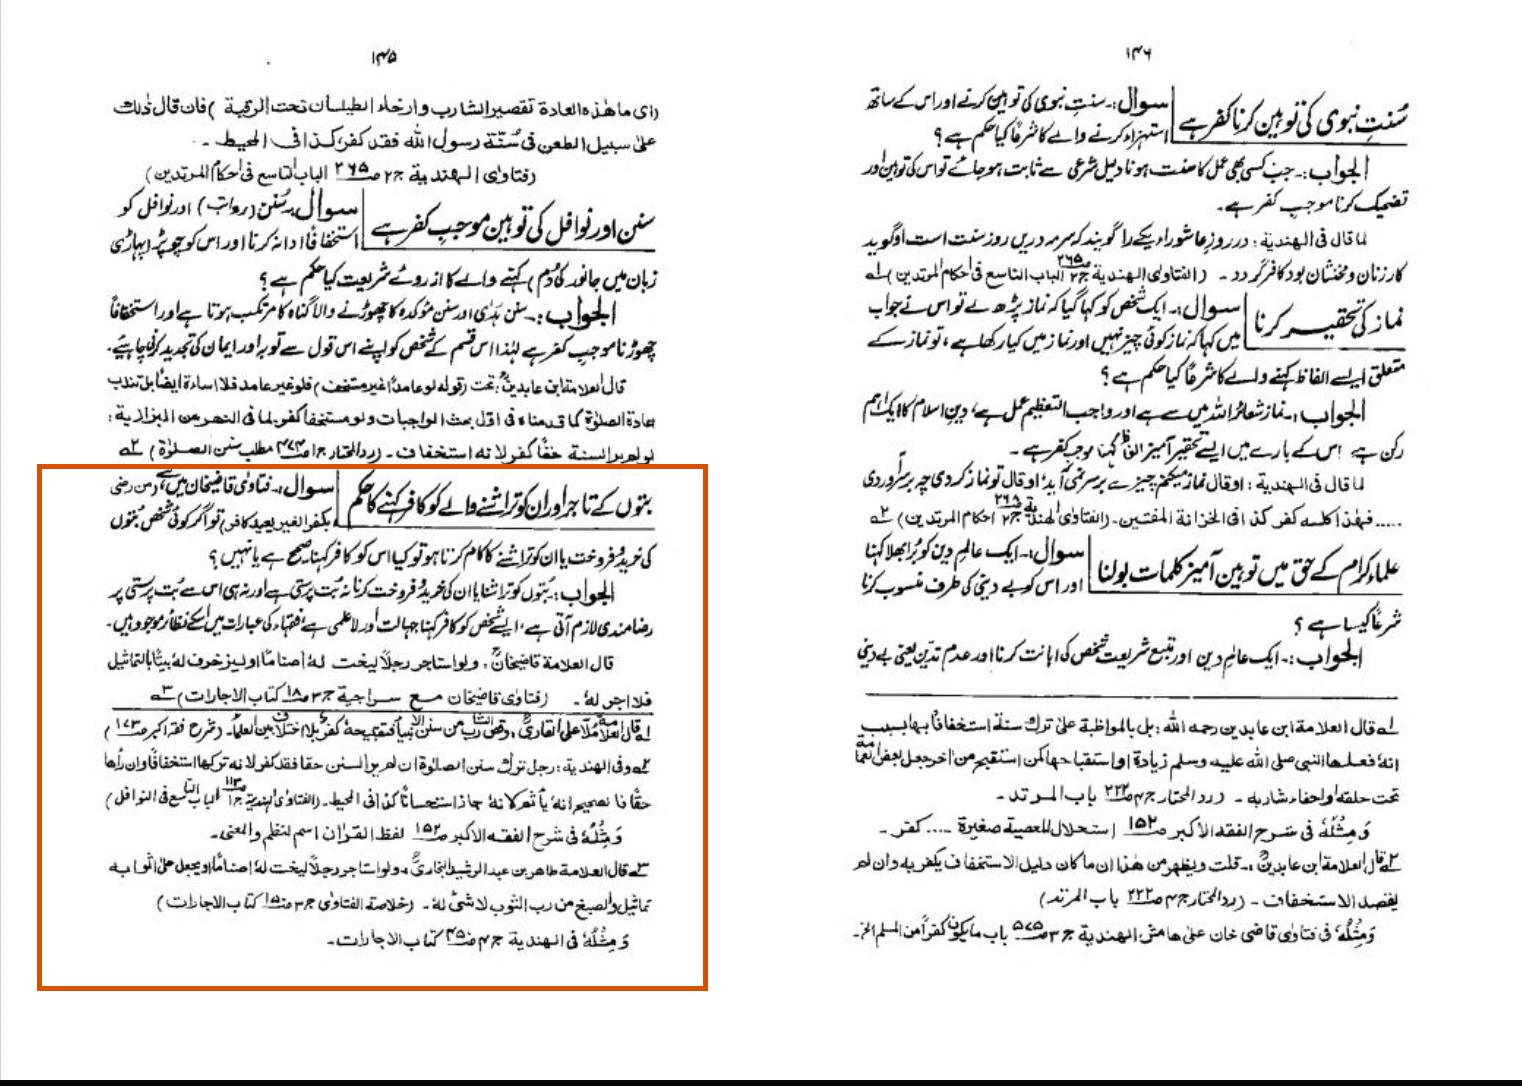 ۱۴۵
(ای ماهٰذه العادة تقصیر الشارب وارخاء الطیلسان تحت الرقبة) فان قال ذٰلك
علیٰ سبیل الطعن فی سُنّة رسول اللہ فقد کفر، کذا فی المحیط۔
(فتاوٰی الهندیة ج۲ ص۲۶۵ الباب التاسع فی احکام المرتدین)
سنن اور نوافل کی توہین موجب کفر ہے
سوال:۔ سُنن (رواتب) اور نوافل کو
استخفافًا ادا نہ کرنا اور اس کو چوپڑ (پہاڑی
زبان میں جانور کی دُم) کہنے والے کا از روئے شریعت کیا حکم ہے؟
الجواب:۔ سنن ہدٰی اور سنن مؤکدہ کا چھوڑنے والا گناہ کا مرتکب ہوتا ہے اور استخفافًا
چھوڑنا موجب کفر ہے لہٰذا اس قسم کے شخص کو اپنے اس قول سے توبہ اور ایمان کی تجدید کرنی چاہیئے۔
قال العلامة ابن عابدین: تحت (قوله لو عامدًا غیر مستخف) فلو غیر عامد فلا اساءة ایضًا بل تندب
اعادة الصلوٰة کما قدمناہ فی اوّل بحث الواجبات ولو مستخفا کفر لما فی النهر عن البزازیة:
لو لم یر السنة حقًا کفر لانه استخفاف۔ (ردالمختار ج۱ ص۴۷۴ مطلب سنن الصلوٰة) ۲ھ
بتوں کے تاجر اور ان کو تراشنے والے کو کافر کہنے کا حکم
سوال:۔ فتاوٰی قاضیخان میں ہے، (من رضی
بکفر الغیر یصیر کافر) تو اگر کوئی شخص بُتوں
کی خرید و فروخت یا ان کو تراشنے کا کام کرتا ہو تو کیا اس کو کافر کہنا صحیح ہے یا نہیں؟
الجواب:۔ بُتوں کو تراشنا یا ان کی خرید و فروخت کرنا نہ بُت پرستی ہے اور نہ ہی اس سے بُت پرستی پر
رضامندی لازم آتی ہے، ایسے شخص کو کافر کہنا جہالت اور لاعلمی ہے، فقہاء کی عبارات میں اسکے نظائر موجود ہیں۔
قال العلامة قاضیخانؒ: ولو استاجر رجلًا ینحت لهٗ اصنامًا او لیزخرف لهٗ بیتًا بالتماثیل
فلا اجر لهٗ۔ (فتاوٰی قاضیخان مع سراجیة ج۳ ص۱۸ کتاب الاجارات) ۳ھ
۱ھ قال العلامة ملا علی القاری: وقص الشارب من سنن الانبیاء فتقبیحهٗ کفر بلا اختلاف بین العلماء۔ (شرح فقه اکبر ص۱۷۳)
۲ھ وفی الهندیة: رجل ترك سنن الصلوٰة ان لم یر السنن حقا فقد کفر لانه ترکها استخفافًا وان راٰها
حقًا فالصحیح انهٗ یأثم لانهٗ جاء استحسانًا کذا فی المحیط۔ (الفتاوٰی الهندیة ج۱ ص۱۱۲ الباب التاسع فی النوافل)
وَمِثْلُهٗ فی شرح الفقه الاکبر ص۱۵۲ لفظ القراٰن اسم للنظم والمعنی۔
۳ھ قال العلامة طاهر بن عبد الرشید البخاری: ولو استاجر رجلًا لینحت لهٗ اصنامًا او یجعل علیٰ اثوابه
تماثیل والصبغ من رب الثوب لاشئ لهٗ۔ (خلاصة الفتاوٰی ج۳ ص۱۵ کتاب الاجارات)
وَمِثْلُهٗ فی الهندیة ج۴ ص۴۵ کتاب الاجارات۔
۱۴۶
سُنتِ نبوی کی توہین کرنا کفر ہے
سوال:۔ سنتِ نبوی کی توہین کرنے اور اس کے ساتھ
استہزاء کرنے والے کا شرعًا کیا حکم ہے؟
الجواب:۔ جب کسی بھی عمل کا سنت ہونا دلیل شرعی سے ثابت ہو جائے تو اس کی توہین اور
تضحیک کرنا موجبِ کفر ہے۔
لما قال فی الهندیة: در روزِ عاشوراء یکے را گویند کہ سرمہ دریں روز سنت است او گوید
کار زنان و مخنثان بود کافر گردد۔ (الفتاوٰی الهندیة ج۲ ص۲۶۵ الباب التاسع فی احکام المرتدین) ۱ھ
نماز کی تحقیر کرنا
سوال:۔ ایک شخص کو کہا گیا کہ نماز پڑھ لے تو اس نے جواب
میں کہا کہ نماز کوئی چیز نہیں اور نماز میں کیا رکھا ہے، تو نماز کے
متعلق ایسے الفاظ کہنے والے کا شرعًا کیا حکم ہے؟
الجواب:۔ نماز شعائر اللہ میں سے ہے اور واجب التعظیم عمل ہے، دینِ اسلام کا ایک اہم
رکن ہے، اس کے بارے میں ایسے تحقیر آمیز الفاظ کہنا موجبِ کفر ہے۔
لما قال فی الهندیة: او قال نماز میکنم چیزے برسر نمی آید، او قال تو نماز کردی چہ برسر آوردی
..... فهذا کلہ کفر کذا فی الخزانة المفتین۔ (الفتاوٰی الهندیة ج۲ ص۲۶۸ احکام المرتدین) ۲ھ
علماء کرام کے حق میں توہین آمیز کلمات بولنا
سوال:۔ ایک عالمِ دین کو بُرا بھلا کہنا
اور اس کو بے دینی کی طرف منسوب کرنا
شرعًا کیسا ہے؟
الجواب:۔ ایک عالمِ دین اور متبعِ شریعت شخص کی اہانت کرنا اور عدم تدین یعنی بے دینی
۱ھ قال العلامة ابن عابدین رحمه اللہ: بل بالمواظبة علیٰ ترك سنة استخفافًا بها بسبب
انهٗ فعلها النبی صلی اللہ علیه وسلم زیادة او استقباحها کمن استقبح من اٰخر جعل بعض العمامة
تحت حلقه او احفاء شاربه۔ (ردالمحتار ج۴ ص۲۲۲ باب المرتد۔
وَمِثْلُهٗ فی شرح الفقه الاکبر ص۱۵۲ استحلال المعصیة صغیرة .... کفر۔
۲ھ قال العلامة ابن عابدین:۔ قلت ویظهر من هٰذا ان ما کان دلیل الاستخفاف یکفر به وان لم
یقصد الاستخفاف۔ (ردالمحتار ج۴ ص۲۲۲ باب المرتد)
وَمِثْلُهٗ فی فتاوٰی قاضی خان علیٰ هامش الهندیة ج۳ ص۵۷۵ باب مایکون کفرًا من المسلم الخ۔